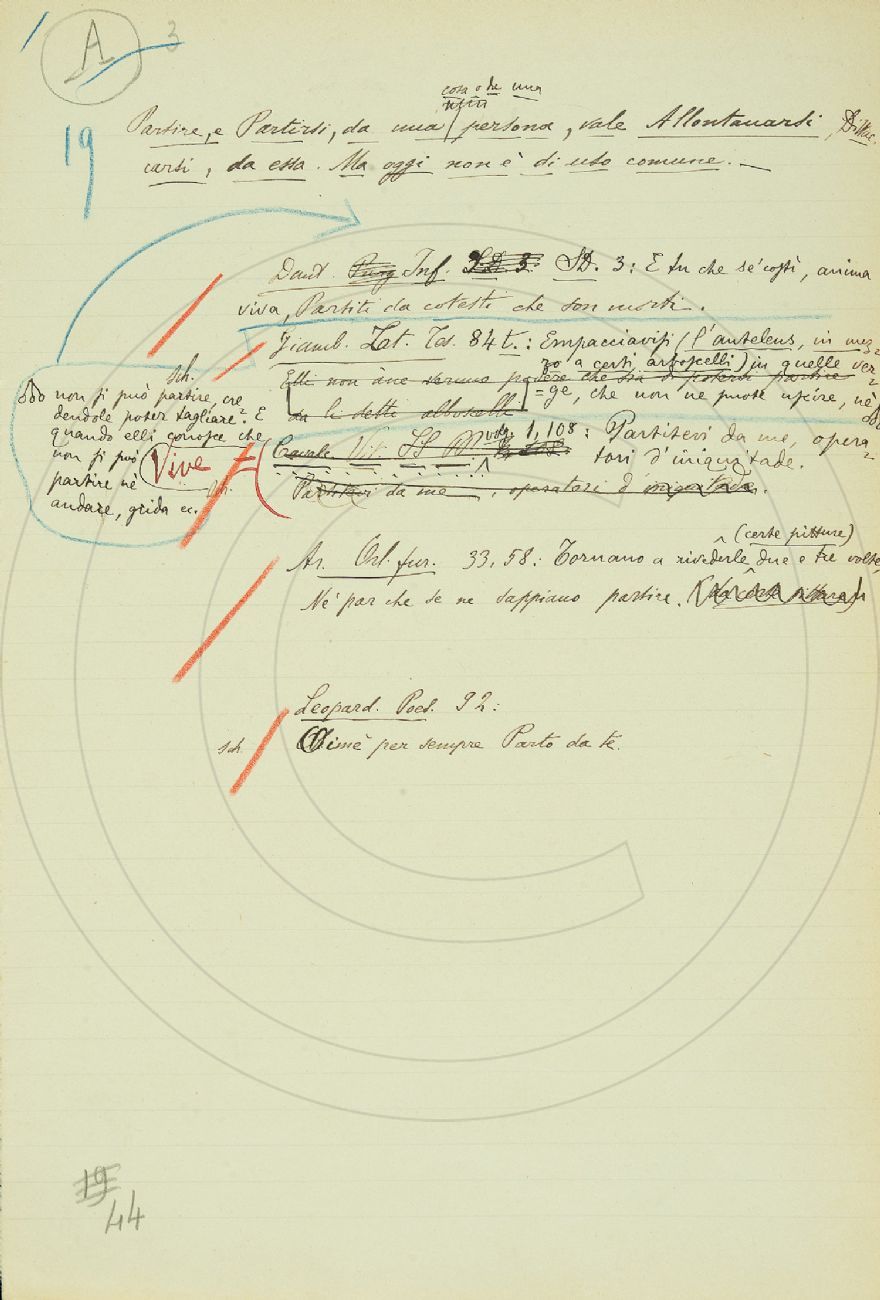 A 3
19
cosa o da una
Partire, e Partirsi, da una persona, vale Allontanarsi,
carsi, da essa. Ma oggi non è di uso comune. —
Dant. Purg Inf. SD. 3: E tu che se' costì, anima
viva, Partiti da cotesti che son morti.
Giamb. Lat. Tes. 84t.: Empacciavisi (l'anteleus, in mez=
zo a certi arboscelli) in quelle ver=
Elli non àne podere che sia di potersi partire
=ge, che non ne puote uscire, nè
da li detti alboselli
sch.
non si può partire, cre
dendole poter tagliare. E
quando elli conosce che
non si può
partire nè
andare, grida ec.
Vive
Cavalc. Vit. SS 1, 108: Partitevi da me, opera=
tori d'iniquitade.
Partitevi da me, operatori d'iniquitade.
(certe pitture)
Ar. Orl. fur. 33, 58: Tornano a rivederle due e tre volte,
Nè par che se ne sappiano partire.
Leopard. Poes. 92:
sch. Oimè per sempre Parto da te.
19
44